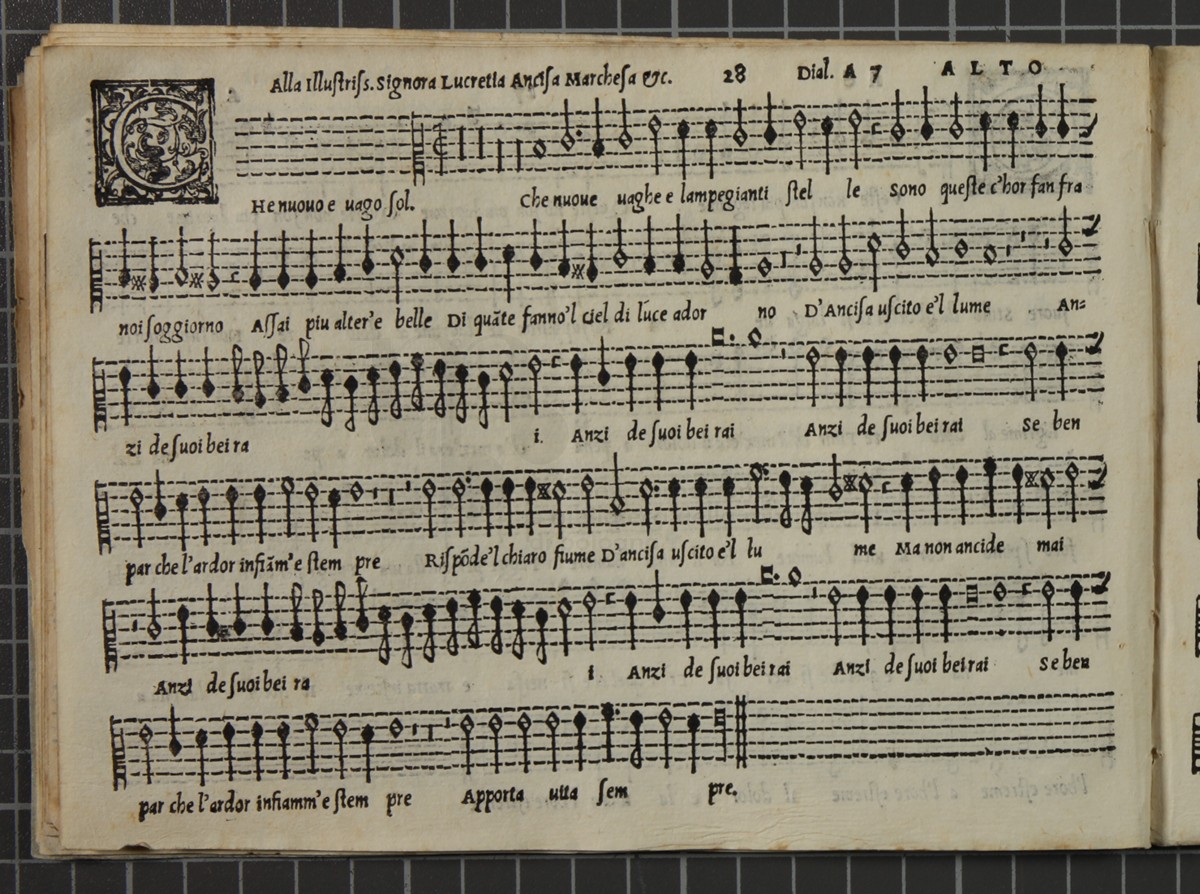 Alla Illuſtriſs. Signora Lucretia Anciſa Marcheſa &c. 28 Dial. A 7 ALTO
C He nuouo e uago ſol. Che nuoue uaghe e lampegianti ſtel le sono queſte c'hor fan fra
noi ſoggiorno Aſſai piu alter'e belle Di quãte fanno'l ciel di luce ador no D'Anciſa uſcito e'l lume An=
zi de ſuoi bei ra i. Anzi de ſuoi bei rai Anzi de ſuoi bei rai Se ben
par che l'ardor infiãm'e ſtem pre Riſpõde'l chiaro fiume D'anciſa uſcito e'l lu me Ma non ancide mai
Anzi de ſuoi bei ra i Anzi de ſuoi bei rai Anzi de ſuoi bei rai Se ben
par che l'ardor infiamm'e ſtem pre Apporta uita ſem pre.